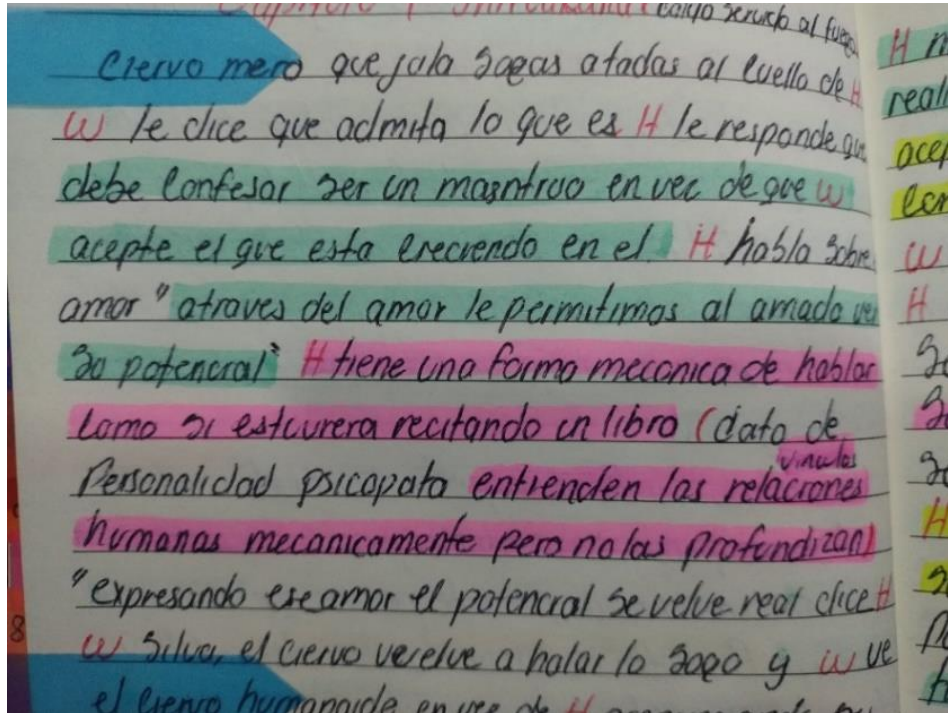 Capitulo 1
Ciervo mero que jala sogas atadas al cuello de H
W le dice que admita lo que es H le responde que
debe confesor ser un masntruo en vec de que W
acepte el que esta creciendo en el. H habla sobre
amor "atraves del amor le permitimos al amado ver
so potencial" H tiene una forma mecanica de hablar
como si estuviera recitando un libro (dato de
Personalidad psicopata entienden las relaciones
vinculos
humanas mecanicamente pero no las profundizan)
"expresando ese amor el potencial se velve real dice H
W Silva, el ciervo vuelve a halar lo soga y W ve
el ciervo humanoide en vez de H
H
reali
acep
W
H
H
8